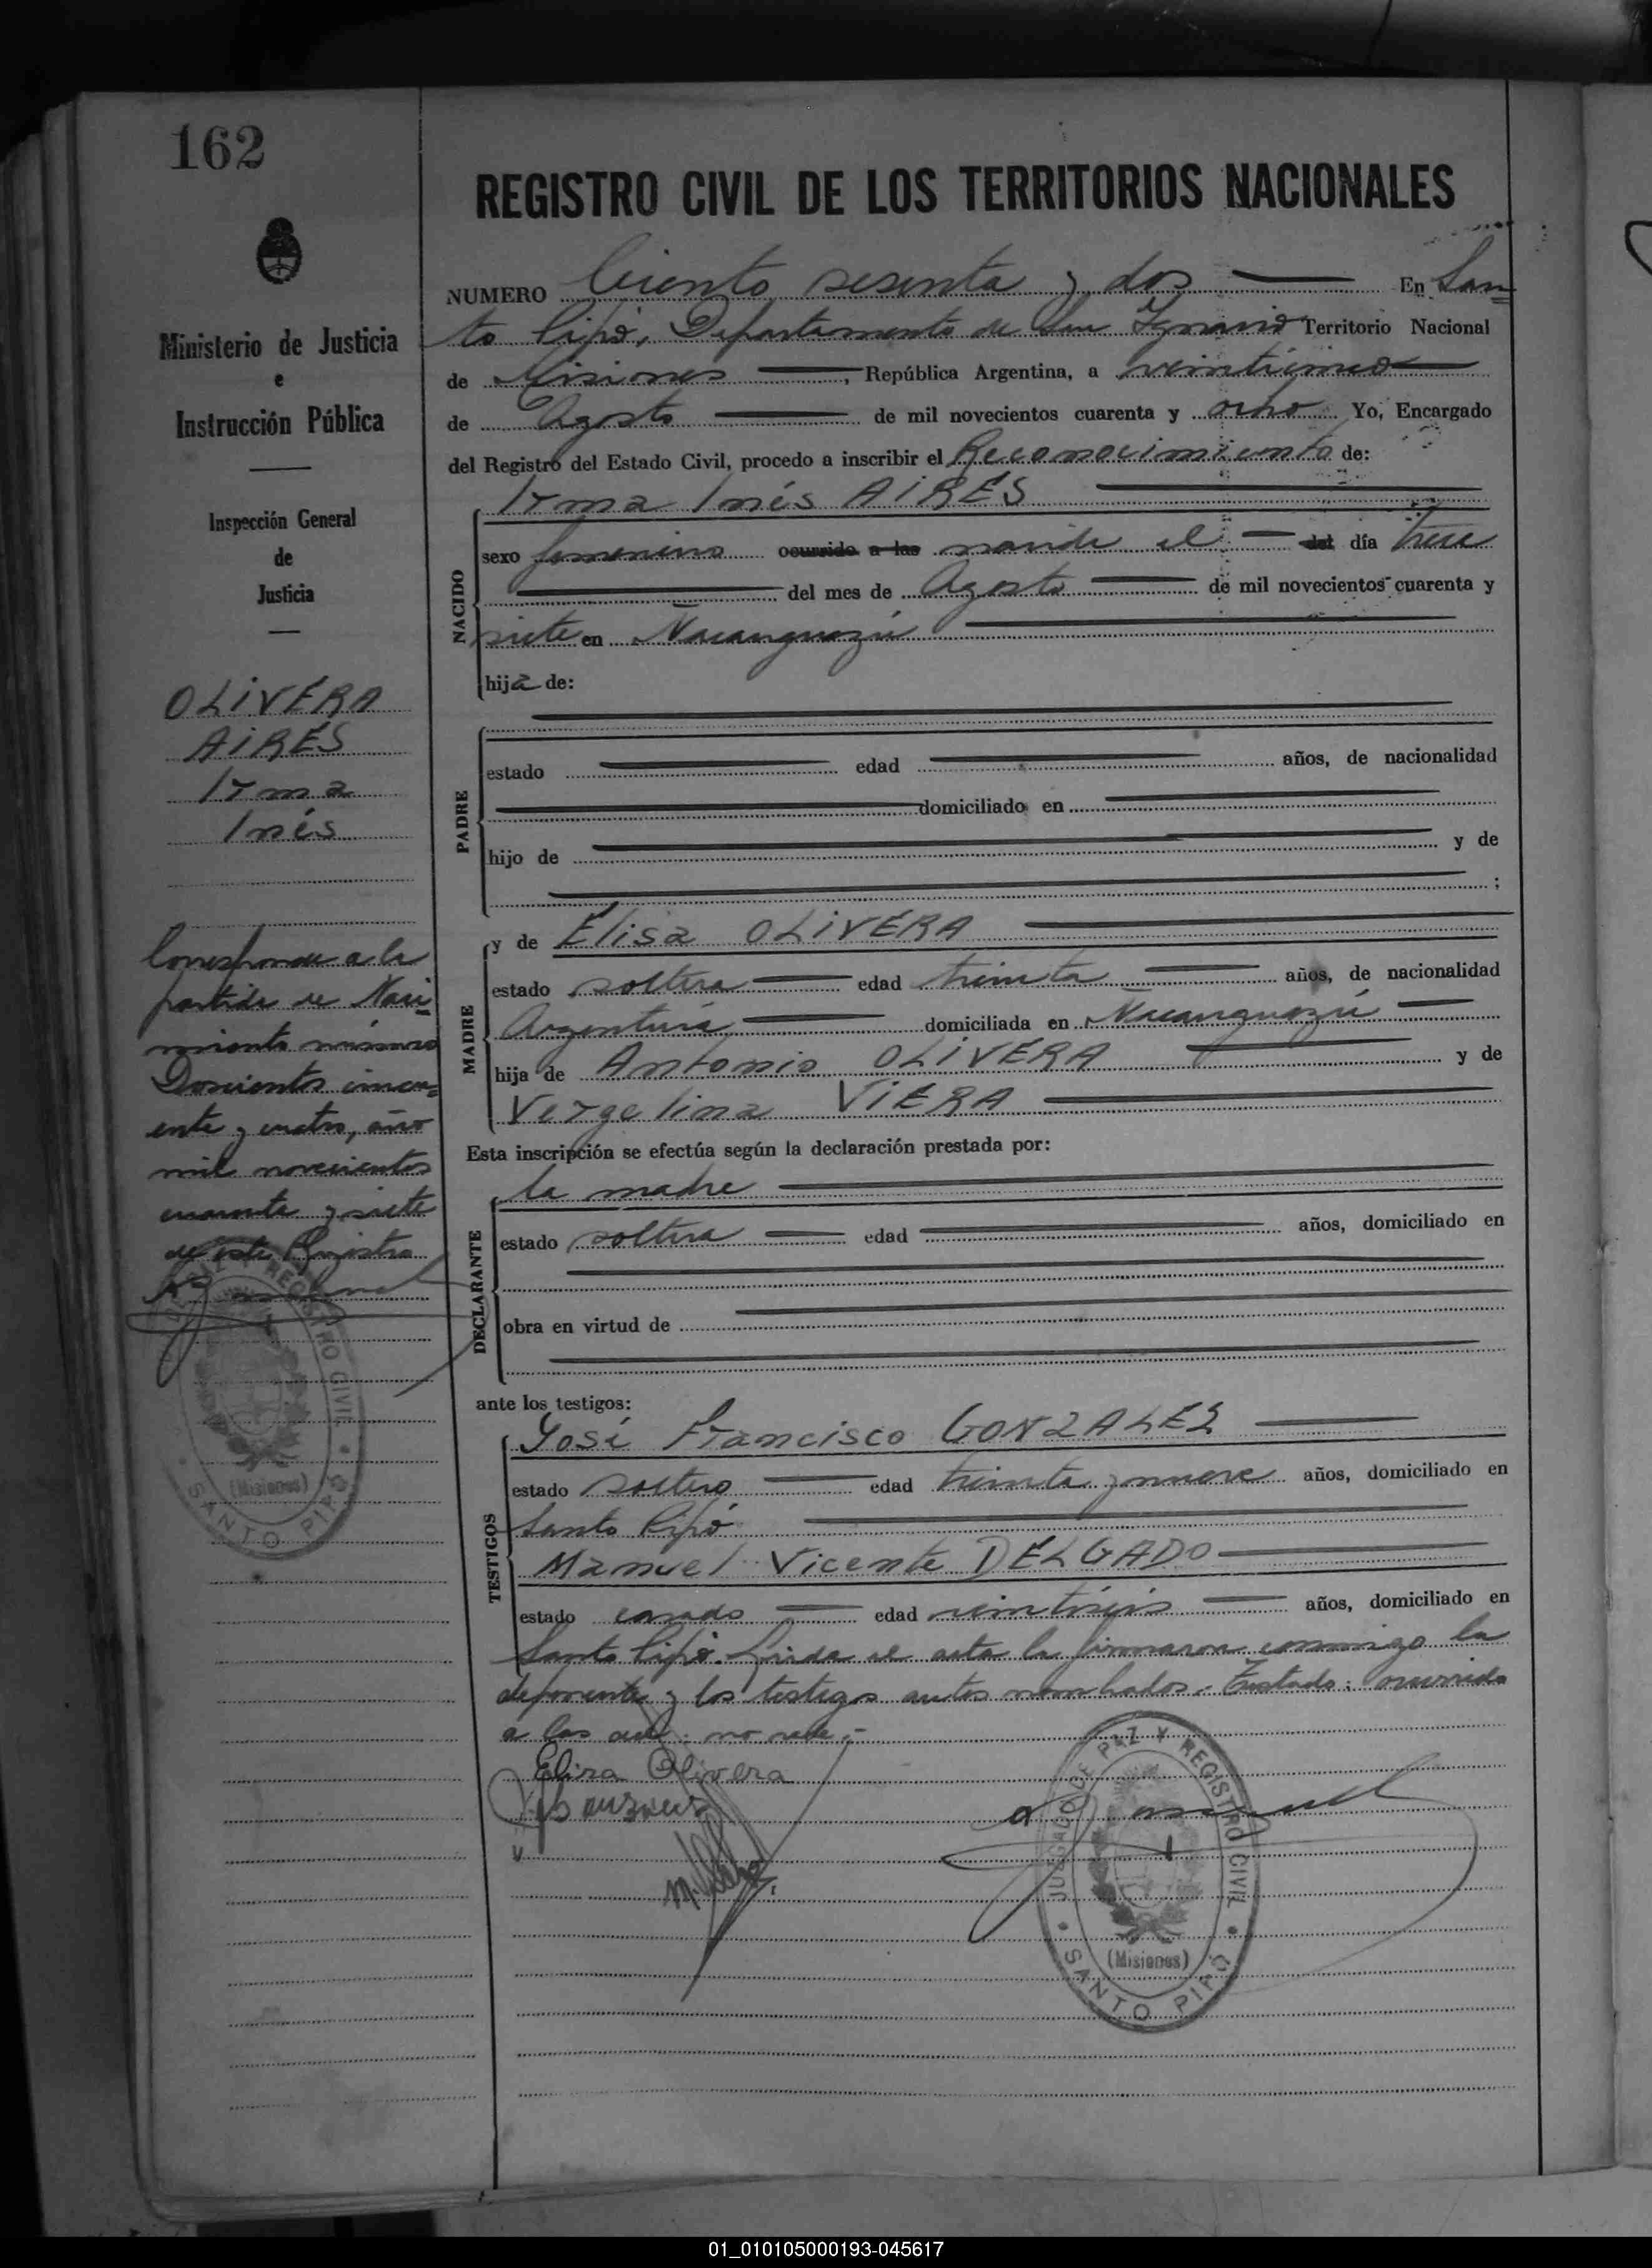 162
REGISTRO CIVIL DE LOS TERRITORIOS NACIONALES
NUMERO Ciento sesenta y dos En San=
to Pipó, Departamento de San Ignacio Territorio Nacional
de Misiones, República Argentina, a veinticinco
de Agosto de mil novecientos cuarenta y ocho Yo, Encargado
del Registro del Estado Civil, procedo a inscribir el Reconocimiento de:
Irma Inés AIRES
NACIDO
sexo femenino ocurrido a las nacida el del día trece
del mes de Agosto de mil novecientos cuarenta y
siete en Ñacanguazú
hija de:
PADRE
estado edad años, de nacionalidad
domiciliado en
hijo de y de
;
MADRE
y de Elisa OLIVERA
estado soltera edad treinta años, de nacionalidad
Argentina domiciliada en Ñacanguazú
hija de Antonio OLIVERA y de
Vergelina VIERA
Esta inscripción se efectúa según la declaración prestada por:
DECLARANTE
la madre
estado soltera edad años, domiciliado en
obra en virtud de
ante los testigos:
TESTIGOS
José Francisco GONZALES
estado soltero edad treinta y nueve años, domiciliado en
Santo Pipó
Manuel Vicente DELGADO
estado casado edad veintiseis años, domiciliado en
Santo Pipó. Leida el acta la firmaron conmigo la
deponente y los testigos antes nombrados. Testado: ocurrido
a las del: no vale.-
Elisa Olivera
JUZGADO DE PAZ Y REGISTRO CIVIL
(Misiones)
SANTO PIPÓ
Ministerio de Justicia
e
Instrucción Pública
Inspección General
de
Justicia
OLIVERA
AIRES
Irma
Inés
Corresponde a la
partida de Naci=
miento número
Doscientos cincu=
enta y cuatro, año
mil novecientos
cuarenta y siete
de este Registro
REGISTRO CIVIL
(Misiones)
SANTO PIPÓ
01_010105000193-045617